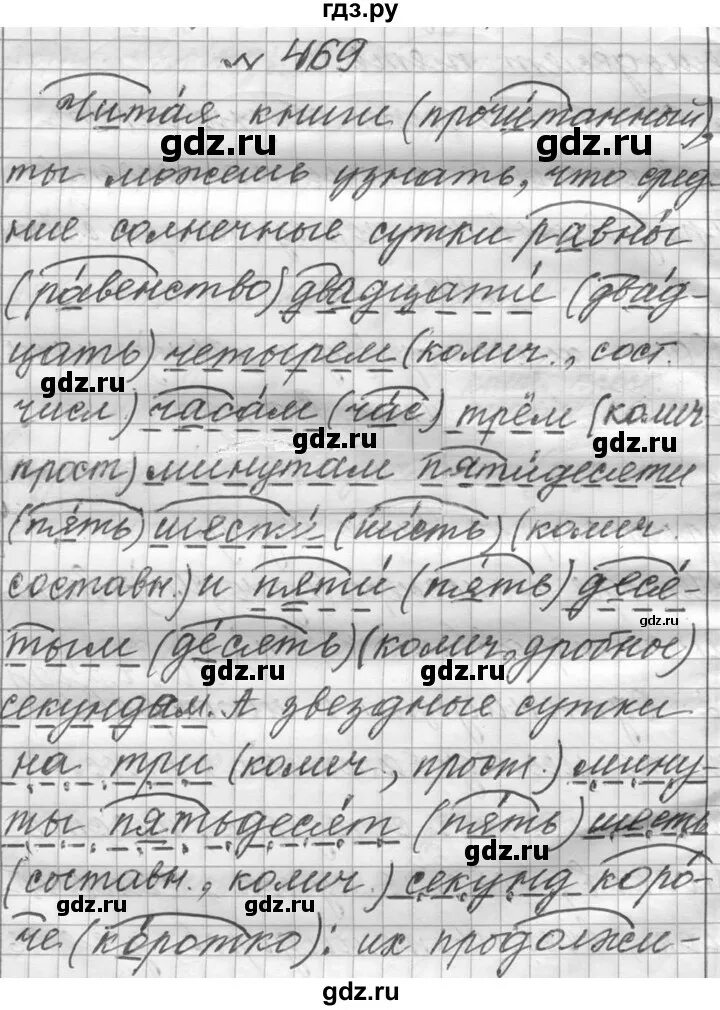 гдз.ру
№ 469
Читая книги (прочитанный),
gdz.ru gdz.ru
ты можешь узнать, что сред-
ние солнечные сутки равны
(равенство) двадцати (двад-
цать) четырем (колич., сост.
gdz.ru
числ) часам (час) трём (колич
gdz.ru gdz.ru
прост) минутам пятидесяти
(пять) шести (шесть) (колич.
составн.) и пяти (пять) деся-
gdz.ru
тым (десять) (колич, дробное)
gdz.ru gdz.ru
секундам. А звездные сутки
на три (колич., прост.) мину-
ты пятьдесят (пять) шесть
gdz.ru
(составн., колич.) секунд коро-
gdz.ru gdz.ru
че (коротко): их продолжи-
gdz.ru